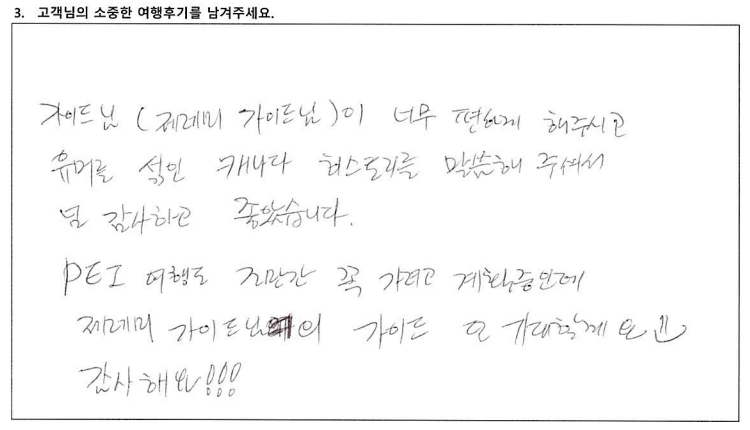 3. 고객님의 소중한 여행후기를 남겨주세요.
가이드님 (제레미 가이드님)이 너무 편하게 해주시고
유머를 섞인 캐나다 히스토리를 말씀해 주셔서
넘 감사하고 좋았습니다.
PEI 여행도 지만간 꼭 가려고 계획중인데
제레미 가이드님의 가이드 또 기대할께요
감사해요!!!